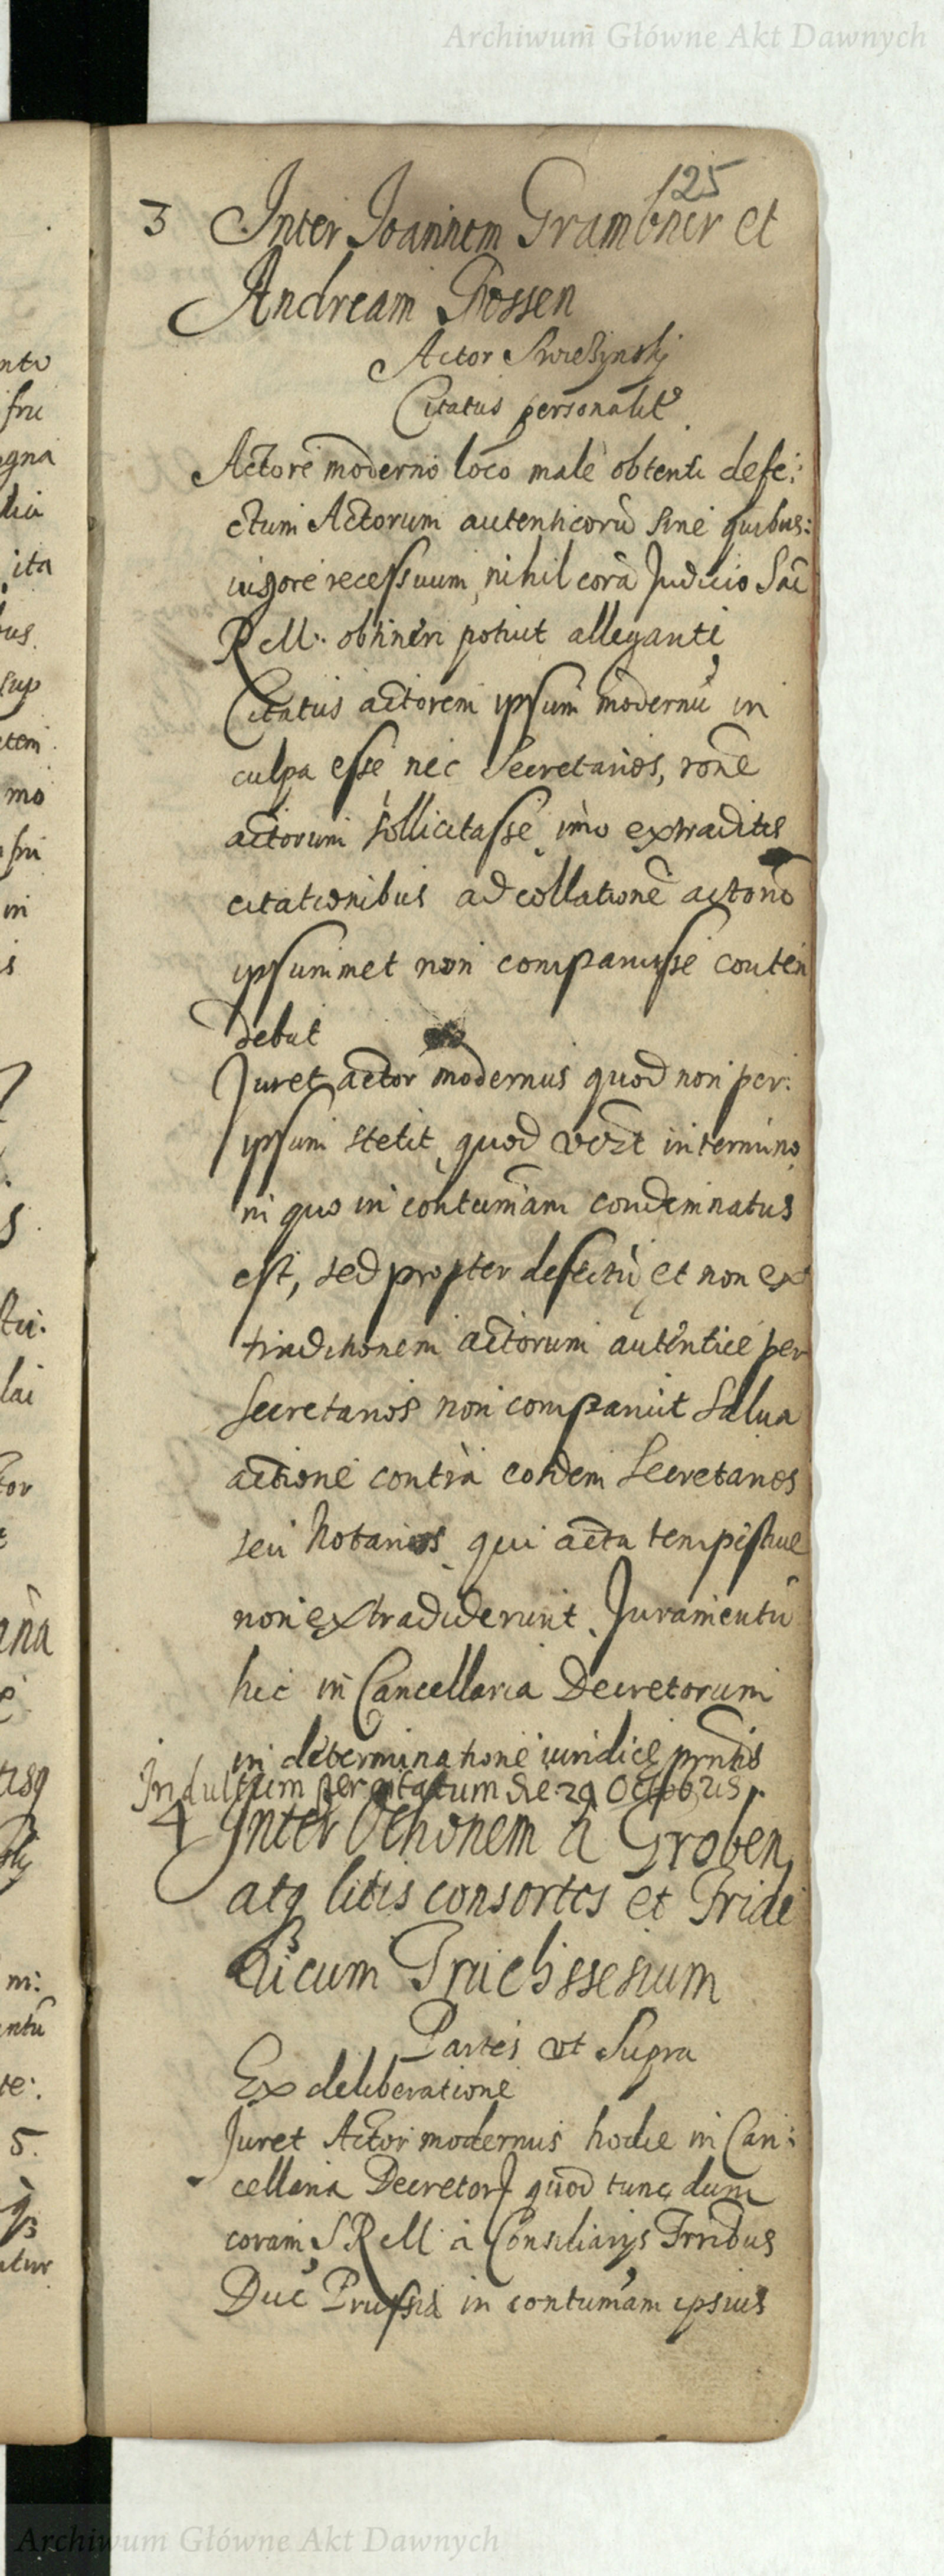 Archiwum Główne Akt Dawnych
125
3 Inter Joannem Grambner et
Andream Grossen
Actor Swieżynskj
Citatus personalit
Actore moderno loco male obtenti defe:
ctum Actorum autenticorū sine quibus:
vigore recessuum, nihil corā Judicio Sac
R M: obtineri potuit alleganti
Citatus actorem ipsum modernū in
culpa esse nec Secretarios, rone
actorum sollicitasse imo extraditis
citationibus ad collationē actorū
ipsummet non comparuisse conten
debat
Juret actor modernus quod non per:
ipsum stetit quod in termino
in quo in contumām condemnatus
est, sed propter defectū et non ex
traditionem actorum autentice per
Secretarios non comparuit Salva
actione contra eosdem Secretarios
seu Notarios qui acta tempestive
non extradiderunt. Juramentū
hic in Cancellaria Decretorum
in determinatione iuridice prntis
Indultum per citatum die 29 Octobris.
4 Inter Othonem a Groben,
atq litis consortes et Fride
ricum
Partes ut Supra
Ex deliberatione
Juret Actor modernus hodie in Can:
cellaria Decretor quod tunc dum
coram S R M a Consiliarys Frribus
Duc Prussia in contumām ipsius
Archiwum Główne Akt Dawnych